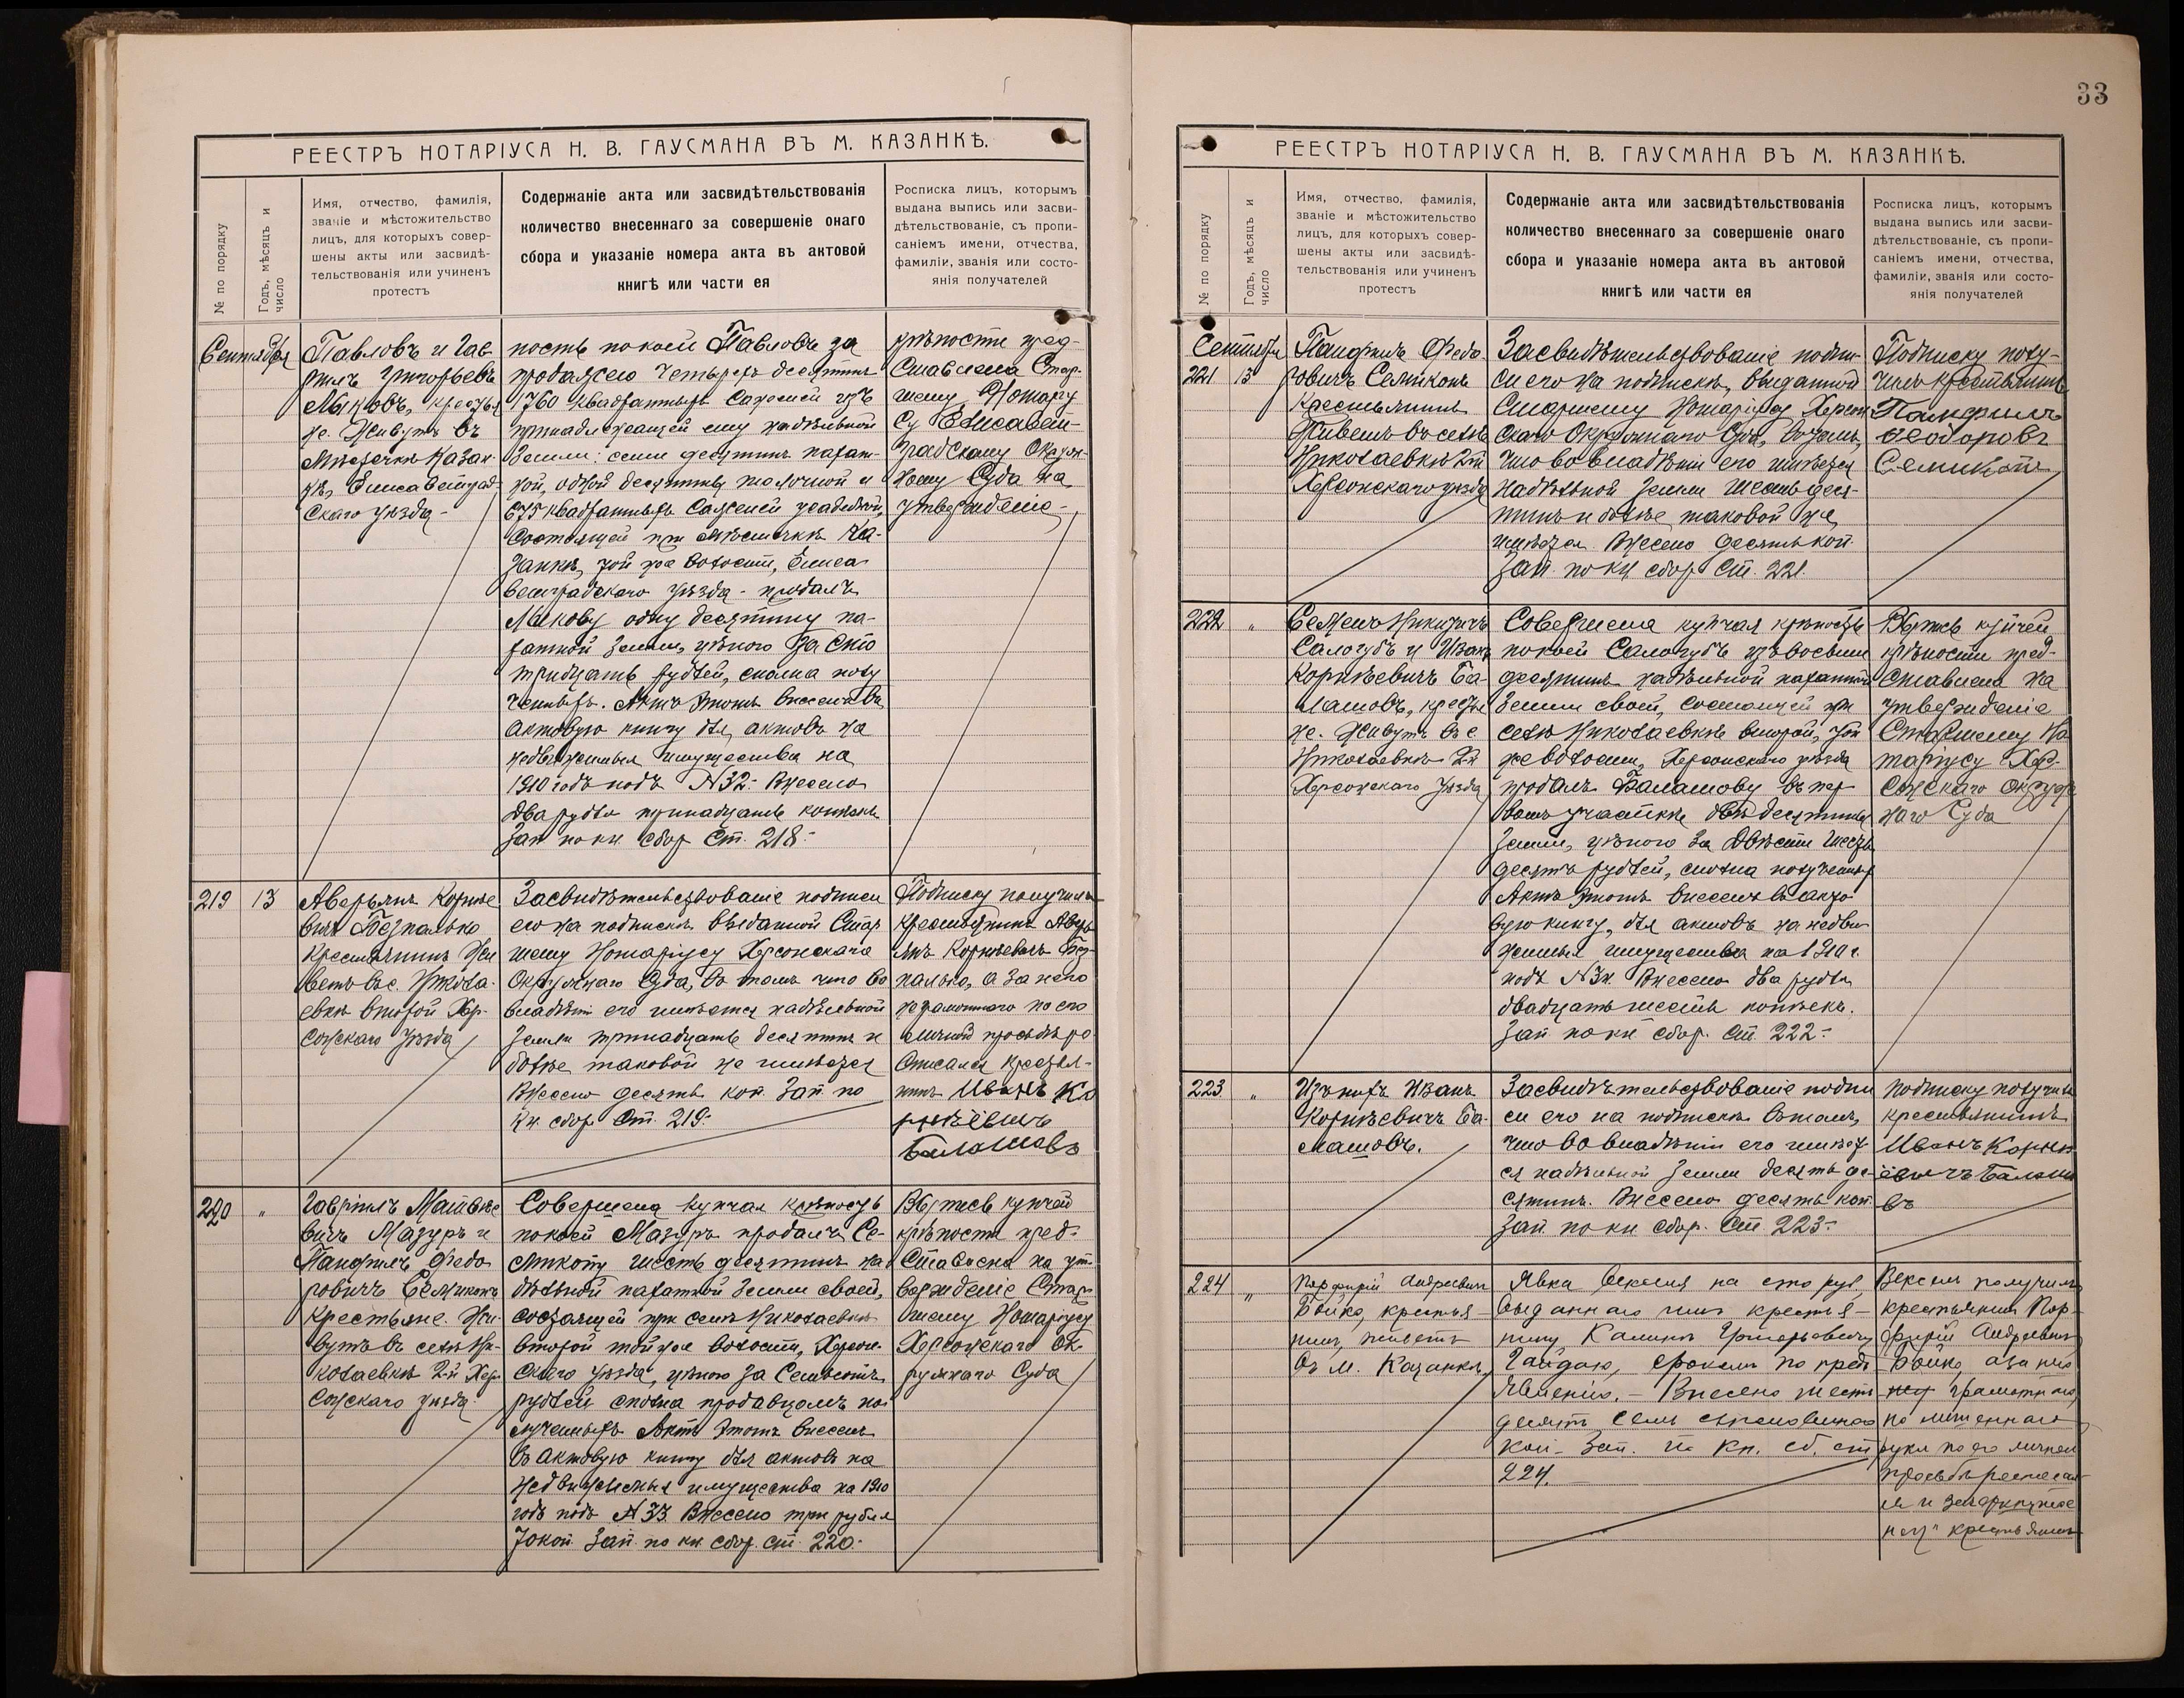 33
РЕЕСТРЪ НОТАРІУСА Н. В. ГАУСМАНА ВЪ М. КАЗАНКѢ.
№ по порядку
Годъ, мѣсяцъ и
число
Имя, отчество, фамилія,
званіе и мѣстожительство
лицъ, для которыхъ совер-
шены акты или засвидѣ-
тельствованія или учиненъ
протестъ
Содержаніе акта или засвидѣтельствованія
количество внесеннаго за совершеніе онаго
сбора и указаніе номера акта въ актовой
книгѣ или части ея
Росписка лицъ, которымъ
выдана выпись или засви-
дѣтельствованіе, съ пропи-
саніемъ имени, отчества,
фамиліи, званія или состо-
янія получателей
Сентября
Павловъ и Гав
ріилъ Григорьевъ
Лыковъ, крестья
не. Живутъ въ
мѣстечкѣ Казан-
кѣ, Елисаветград-
скаго уѣзда -
ность по коей Павловъ за
продажею четырехъ десятинъ
1760 квадратныхъ саженей изъ
принадлежащей ему надѣльной
земли: семи десятинъ пахат-
ной, одной десятины толочной и
675 квадратныхъ саженей усадебной,
состоящей при мѣстечкѣ Ка-
занкѣ, той же волости, Елиса
ветградскаго уѣзда - продалъ
Лыкову одну десятину па-
хатной земли, цѣною за сто
тридцать рублей, сполна полу
ченныхъ. Актъ этотъ внесенъ въ
актовую книгу для актовъ на
недвижимыя имущества на
1910 годъ подъ N 32.- Внесено
два рубля тринадцать копѣекъ
Зап по кн. сбор Ст. 218.-
крѣпости пред-
ставлена Стар-
шему Нотаріу
су Елисавет-
градскаго Окруж-
наго Суда на
утвержденіе -
219 13
Аверьянъ Корнѣе
вичъ Безпалько
крестьянинъ Жи
ветъ въ с. Никола-
евкѣ второй Хер-
сонскаго уѣзда
Засвидѣтельствованіе подписи
его на подпискѣ выданной Стар
шему Нотаріусу Херсонскаго
Окружнаго Суда, въ томъ что во
владѣніи его имѣется надѣльной
земли тринадцать десятинъ и
болѣе таковой не имѣется
Внесено десять коп. Зап по
кн. сбор Ст. 219.-
Подписку получилъ
крестьянинъ Аверь
янъ Корнѣевичъ Без-
палько, а за него
неграмотнаго по его
личной просьбѣ ро
списался крестья-
нинъ Иванъ Ко
рнѣевичъ
Балашовъ
220 "
Гавріилъ Матвѣе
вичъ Мазуръ и
Панфилъ Федо
ровичъ Семиконъ
Крестьяне. Жи-
вутъ въ селѣ Ни-
колаевкѣ 2-й Хер-
сонскаго уѣзда
Совершена купчая крѣпость
по коей Мазуръ продалъ Се-
микону шесть десятинъ на
дѣльной пахатной земли своей,
состоящей при селѣ Николаевкѣ
второй той же волости, Херсон-
скаго уѣзда, цѣною за семьсотъ
рублей сполна продавцомъ по-
лученныхъ Актъ этотъ внесенъ
въ актовую книгу для актовъ на
недвижимыя имущества на 1910
годъ подъ N 33 Внесено три рубля
70 коп. Зап. по кн. сбор. ст. 220.-
Выпись купчей
крѣпости пред-
ставлена на ут
вержденіе Стар-
шему Нотаріусу
Херсонскаго Ок
ружнаго Суда
РЕЕСТРЪ НОТАРІУСА Н. В. ГАУСМАНА ВЪ М. КАЗАНКѢ.
№ по порядку
Годъ, мѣсяцъ и
число
Имя, отчество, фамилія,
званіе и мѣстожительство
лицъ, для которыхъ совер-
шены акты или засвидѣ-
тельствованія или учиненъ
протестъ
Содержаніе акта или засвидѣтельствованія
количество внесеннаго за совершеніе онаго
сбора и указаніе номера акта въ актовой
книгѣ или части ея
Росписка лицъ, которымъ
выдана выпись или засви-
дѣтельствованіе, съ пропи-
саніемъ имени, отчества,
фамиліи, званія или состо-
янія получателей
Сентября
221 13
Панфилъ Федо-
ровичъ Семиконъ
Крестьянинъ
Живетъ въ селѣ
Николаевкѣ 2-й
Херсонскаго уѣзда
Засвидѣтельствованіе подпи-
си его на подпискѣ, выданной
Старшему Нотаріусу Херсон
скаго Окружнаго Суда, въ томъ,
что во владѣніи его имѣется
надѣльной земли шесть деся-
тинъ и болѣе таковой не
имѣется. Внесено десять коп.
Зап. по кн. сбор Ст. 221.
Подписку полу-
чилъ крестьянинъ
Панфилъ
Феодоровъ
Семиконъ
222 "
Семенъ Никитичъ
Салогубъ и Иванъ
Корнѣевичъ Ба-
лашовъ, крестья
не. Живутъ въ с
Николаевкѣ 2-й
Херсонскаго уѣзда
Совершена купчая крѣпость
по коей Салогубъ изъ восьми
десятинъ надѣльной пахатной
земли своей, состоящей при
селѣ Николаевкѣ второй, той
же волости, Херсонскаго уѣзда
продалъ Балашову въ пер
вомъ участкѣ двѣ десятины
земли, цѣною за двѣсти шесть
десятъ рублей, сполна полученныхъ
Актъ этотъ внесенъ въ акто
вую книгу, для актовъ на недви
жимыя имущества на 1910 г.
подъ N 34. Внесено два рубля
двадцать шесть копѣекъ.
Зап по кн сбор. ст. 222.-
Выпись купчей
крѣпости пред-
ставлена на
утвержденіе
Старшему Но
таріусу Хер-
сонскаго Окруж
наго Суда
223 "
Изъ нихъ Иванъ
Корнѣевичъ Ба-
лашовъ.
Засвидѣтельствованіе подпи
си его на подпискѣ въ томъ,
что во владѣніи его имѣет-
ся надѣльной земли десять де-
сятинъ. Внесено десять коп.
Зап по кн сбор. Ст. 223.-
подписку получилъ
крестьянинъ
Иванъ Корнѣ
евичъ Балашо
въ
224 "
Порфирій Андреевичъ
Бойко, крестья-
нинъ, живетъ
въ м. Казанкѣ,
Явка векселя на сто руб,
выданнаго имъ крестья-
нину Калинѣ Григорьевичу
Гайдаю, срокомъ по предъ-
явленію. - Внесено шесть
десятъ семь съ половиною
коп. - Зап. по кн. сб. ст
224.
Вексель получилъ
крестьянинъ Пор-
фирій Андреевичъ
Бойко, а за него
грамотнаго,
но лишеннаго
руки по его личной
просьбѣ росписал-
ся
крестьянинъ